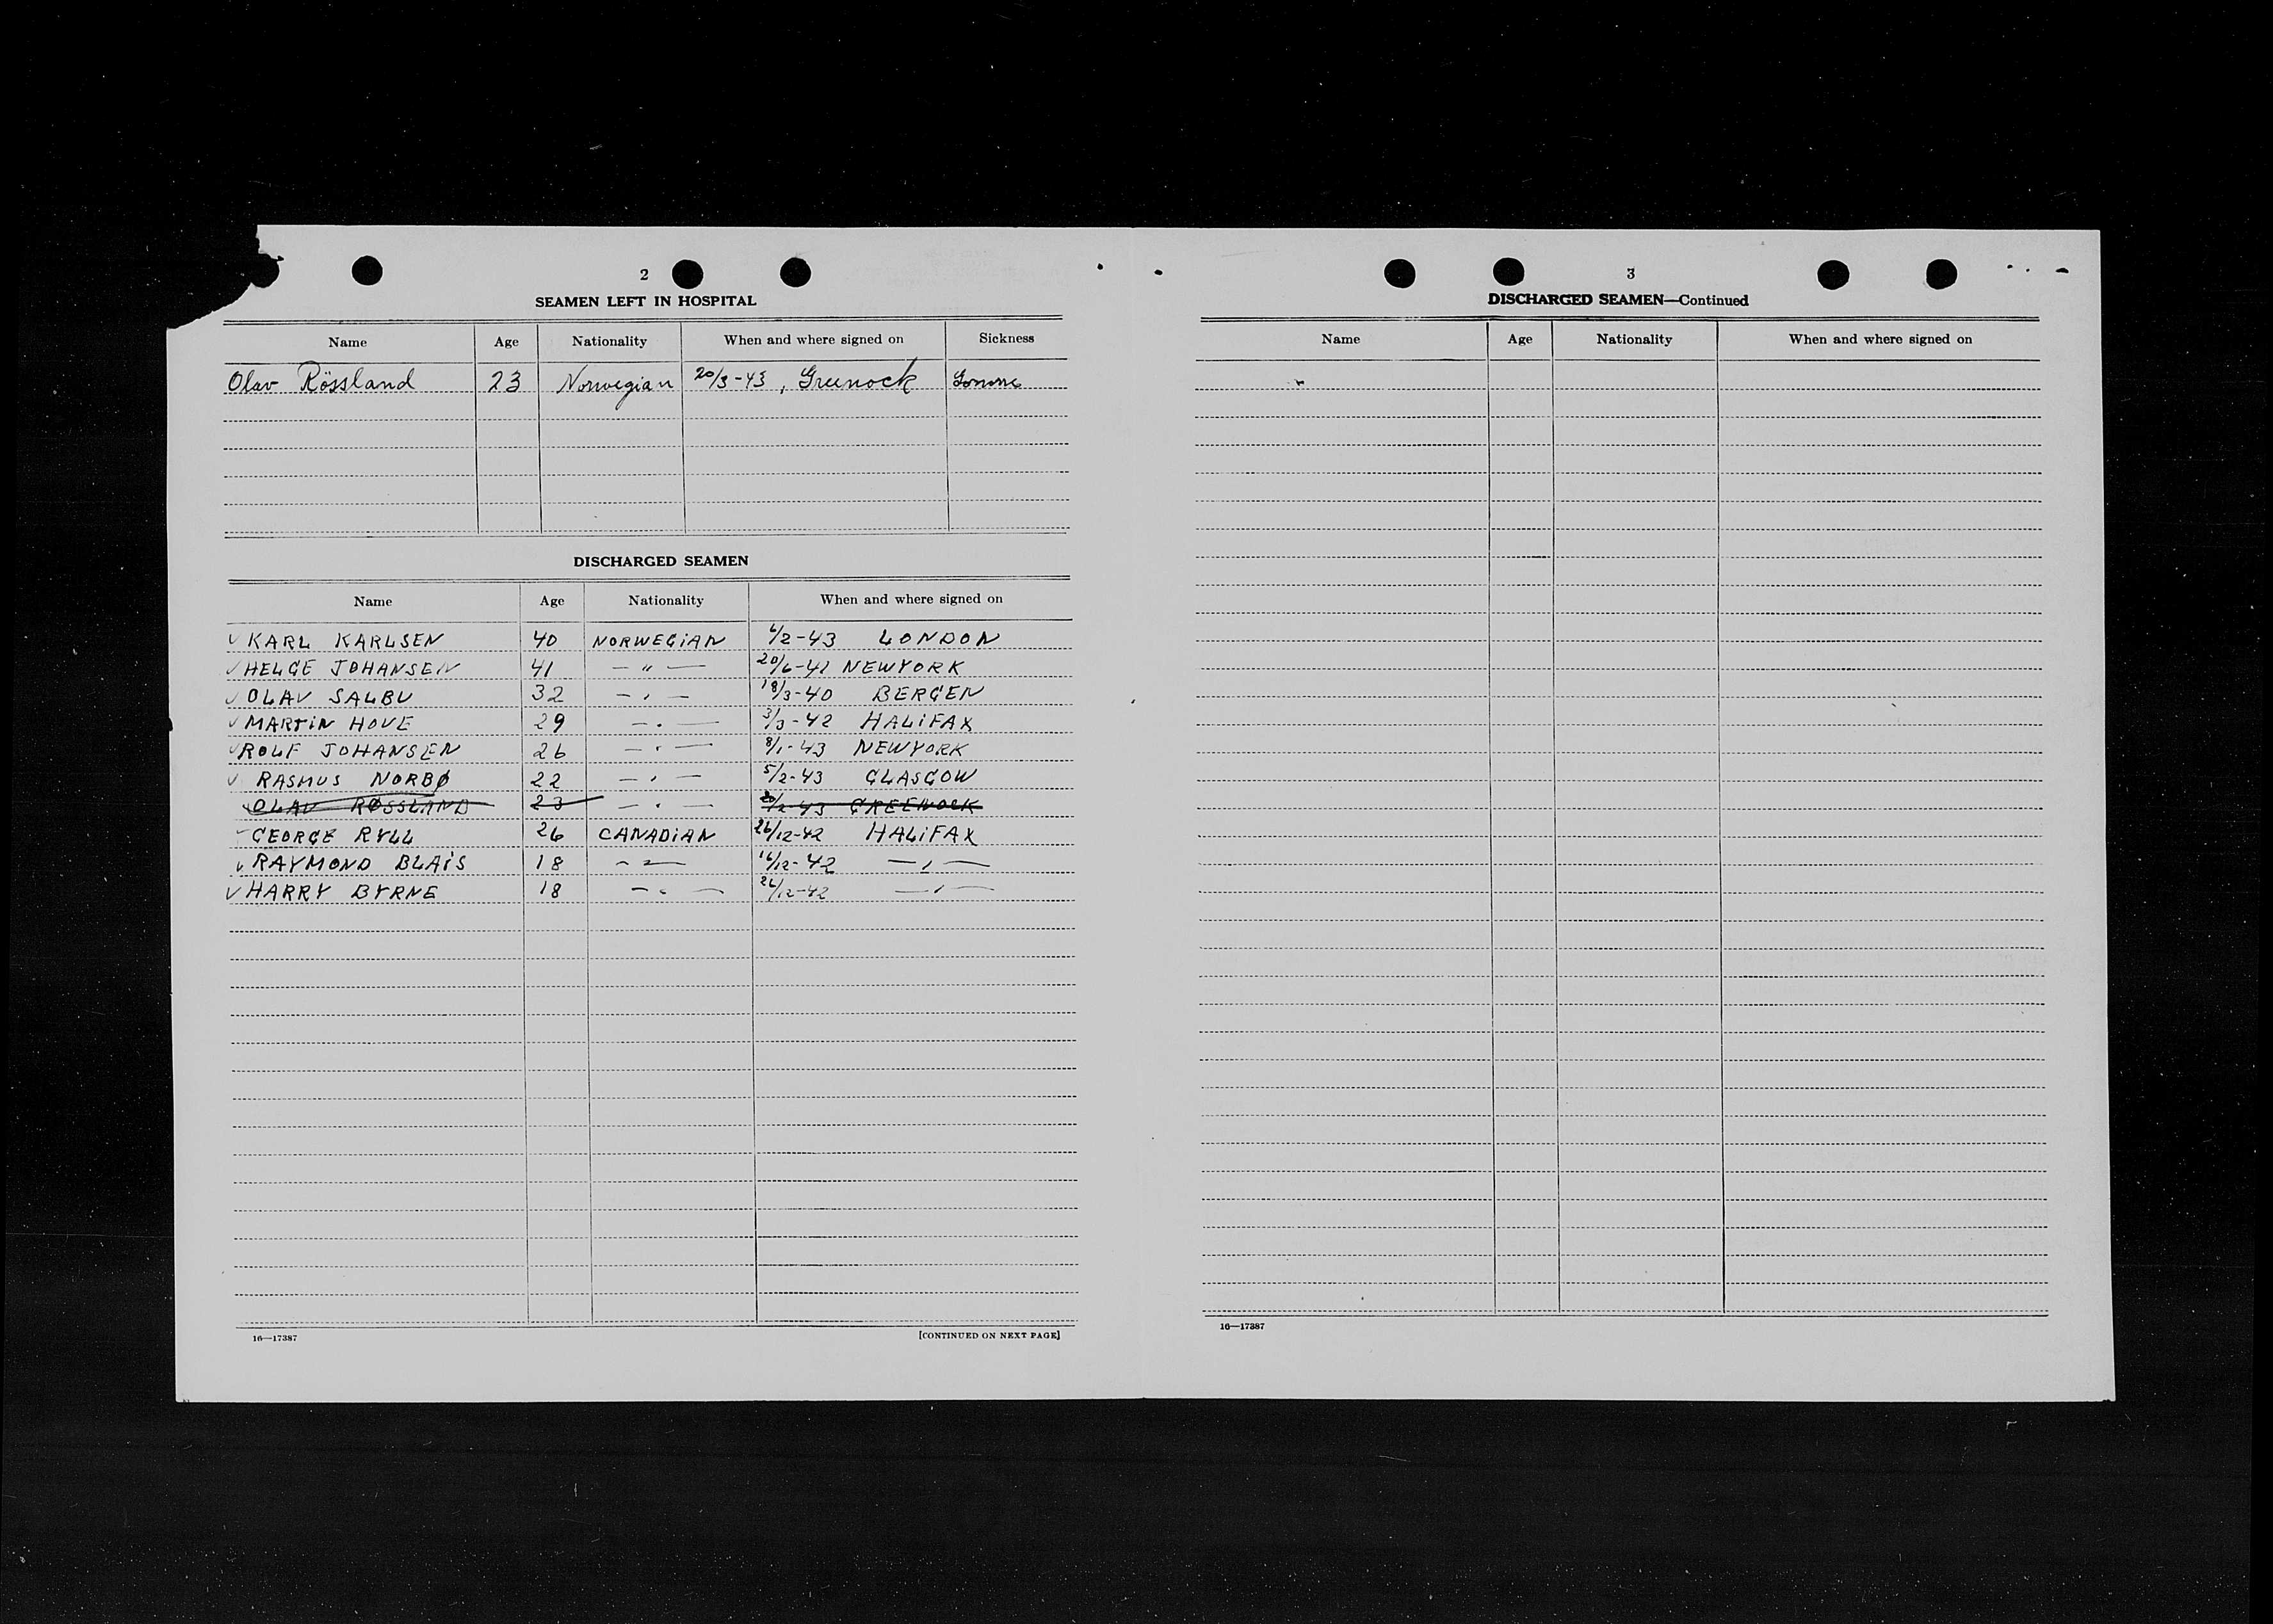 2
SEAMEN LEFT IN HOSPITAL
Name Age Nationality When and where signed on Sickness
Olav Rössland 23 Norwegian 20/3-43, Greenock
DISCHARGED SEAMEN
Name Age Nationality When and where signed on
✓ KARL KARLSEN 40 NORWEGIAN 6/2-43 LONDON
✓ HELGE JOHANSEN 41 — " — 20/6-41 NEWYORK
✓ OLAV SALBU 32 — , — 18/3-40 BERGEN
✓ MARTIN HOVE 29 — . — 3/3-42 HALIFAX
✓ ROLF JOHANSEN 26 — " — 8/1-43 NEWYORK
✓ RASMUS NORBØ 22 — , — 5/2-43 GLASGOW
OLAV RØSSLAND 23 — . — 20/2-43 GREENOCK
✓ GEORGE RYLL 26 CANADIAN 26/12-42 HALIFAX
✓ RAYMOND BLAIS 18 — " — 16/12-42 — , —
✓ HARRY BYRNE 18 — " — 26/12-42 — , —
16—17387 [CONTINUED ON NEXT PAGE]
3
DISCHARGED SEAMEN—Continued
Name Age Nationality When and where signed on
16—17387